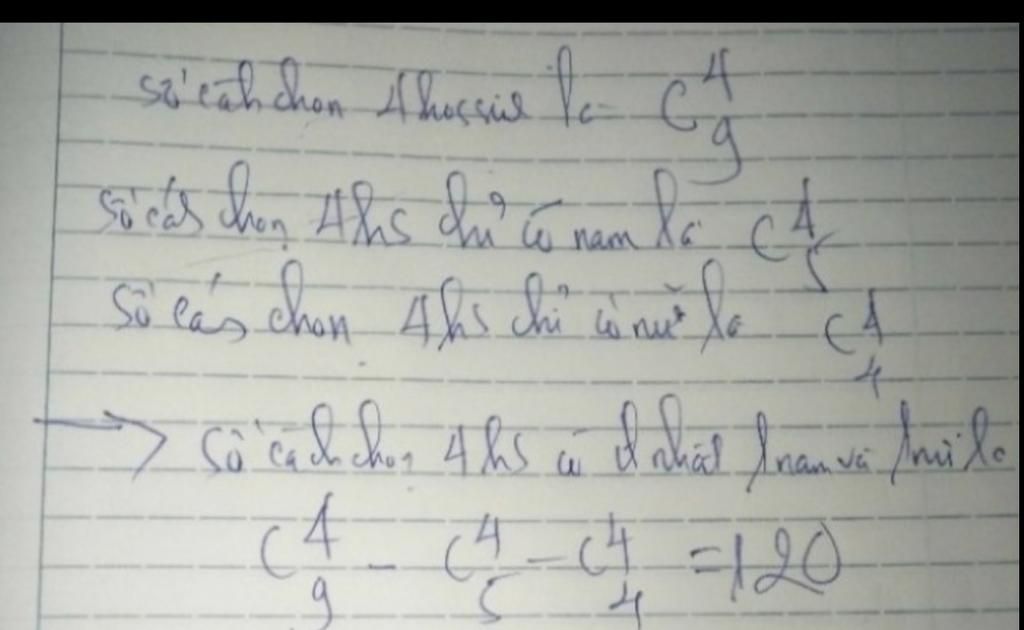 Số cách chọn 4 học sinh là C⁴₉
Số cách chọn 4 hs chỉ có nam là C⁴₅
Số cách chọn 4 hs chỉ có nữ là C⁴₄
→ Số cách chọn 4 hs có ít nhất 1 nam và 1 nữ là
C⁴₉ - C⁴₅ - C⁴₄ = 120